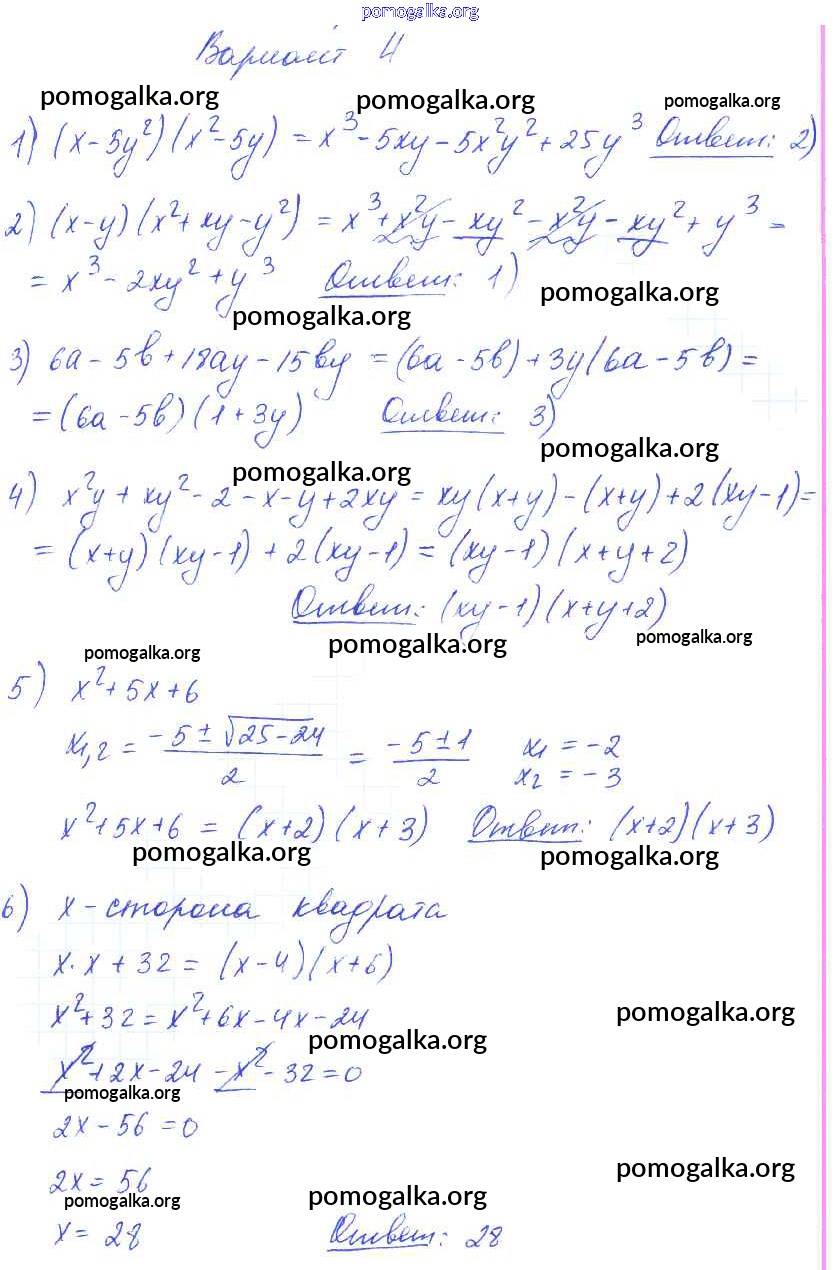 pomogalka.org
Вариант 4
pomogalka.org pomogalka.org pomogalka.org
1) (x-5y²)(x²-5y) = x³-5xy-5x²y²+25y³ Ответ: 2)
2) (x-y)(x²+xy-y²) = x³+x²y-xy²-x²y-xy²+y³=
= x³-2xy²+y³ Ответ: 1)
pomogalka.org
pomogalka.org
3) 6a-5b+18ay-15by = (6a-5b)+3y(6a-5b)=
=(6a-5b)(1+3y) Ответ: 3)
pomogalka.org
pomogalka.org
4) x²y+xy²-2-x-y+2xy = xy(x+y)-(x+y)+2(xy-1)=
= (x+y)(xy-1)+2(xy-1) = (xy-1)(x+y+2)
Ответ: (xy-1)(x+y+2)
pomogalka.org pomogalka.org
pomogalka.org
5) x²+5x+6
x1,2 = (-5±√25-24)/2 = (-5±1)/2 x1 = -2
x2 = -3
x²+5x+6 = (x+2)(x+3) Ответ: (x+2)(x+3)
pomogalka.org pomogalka.org
6) x-сторона квадрата
x·x+32=(x-4)(x+6)
x²+32=x²+6x-4x-24
pomogalka.org
pomogalka.org
x²+2x-24-x²-32=0
pomogalka.org
2x-56=0
pomogalka.org
2x=56
pomogalka.org pomogalka.org
x=28 Ответ: 28